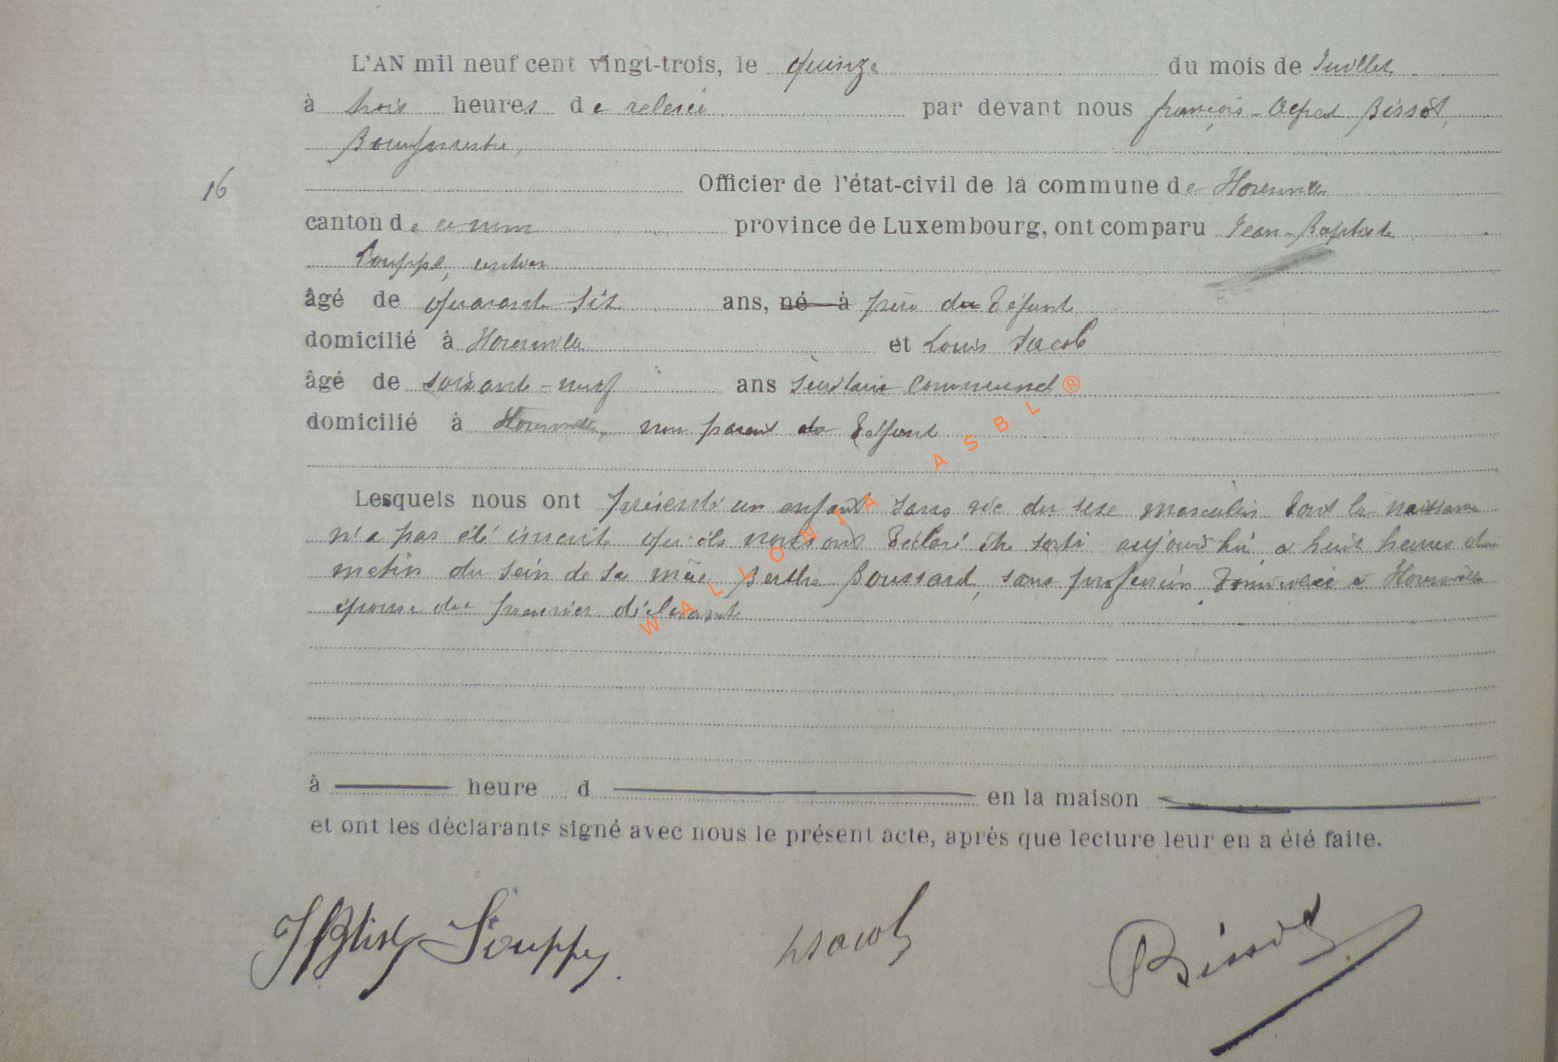 L'AN mil neuf cent vingt-trois, le quinze du mois de Juillet
à trois heures de relevée par devant nous françois-Alfred Bissot,
Bourgmestre,
16
Officier de l'état-civil de la commune de
canton de ce nom province de Luxembourg, ont comparu Jean-Baptiste
âgé de quarante six ans, né à père du défunt
domicilié à et Louis Jacob
âgé de soixante-neuf ans secrétaire communal
domicilié à non parent du défunt
Lesquels nous ont présenté un enfant sans vie du sexe masculin dont la naissance
n'a pas été qu'ils nous ont déclaré être sorti aujourd'hui à huit heures du
matin du sein de sa mère Berthe Boussard, sans profession, domiciliée à
épouse du premier déclarant
à heure d en la maison
et ont les déclarants signé avec nous le présent acte, après que lecture leur en a été faite.
LJacob Bissot
WALLONIA ASBL ®